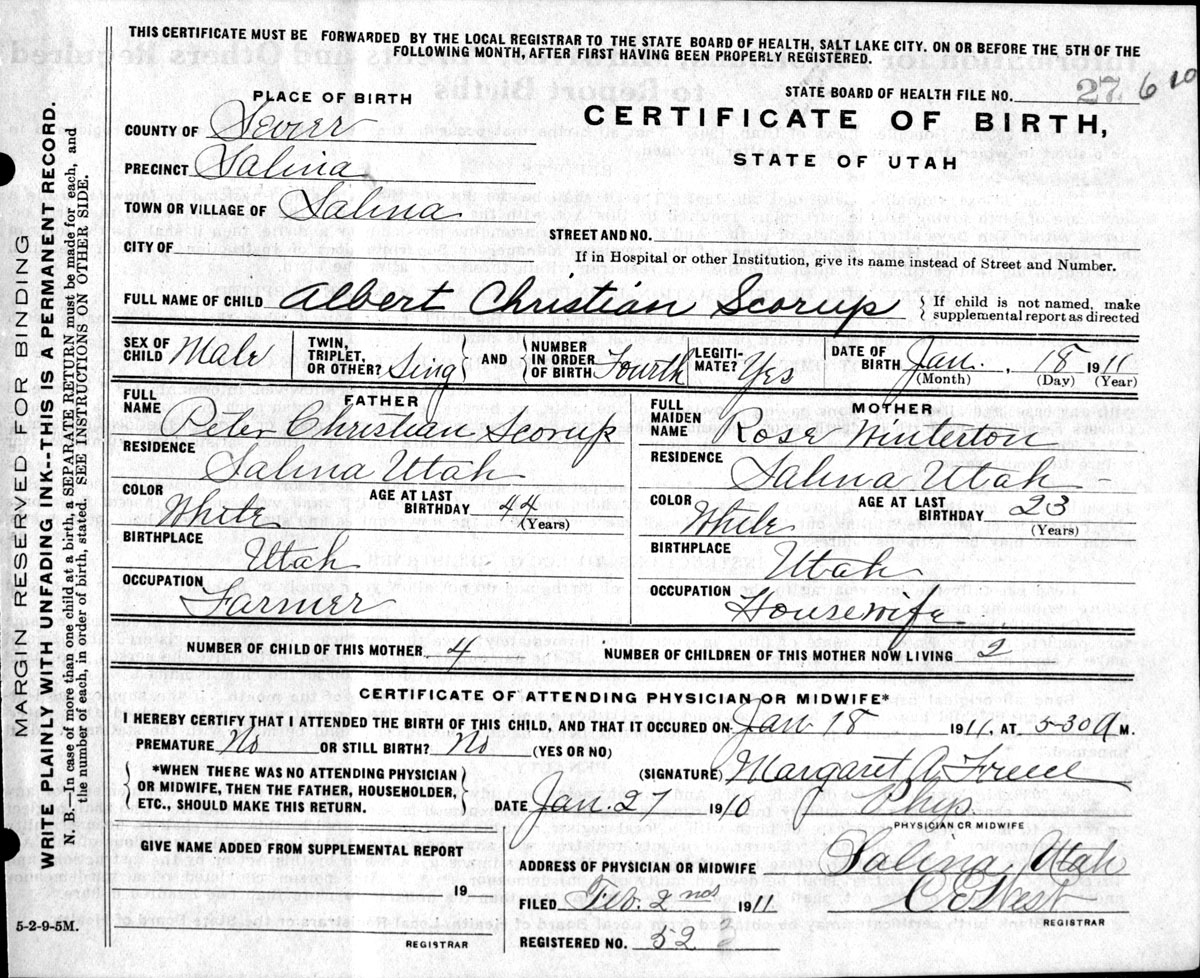 THIS CERTIFICATE MUST BE FORWARDED BY THE LOCAL REGISTRAR TO THE STATE BOARD OF HEALTH, SALT LAKE CITY. ON OR BEFORE THE 5TH OF THE
FOLLOWING MONTH, AFTER FIRST HAVING BEEN PROPERLY REGISTERED.
STATE BOARD OF HEALTH FILE NO. 27 6 10
PLACE OF BIRTH
CERTIFICATE OF BIRTH,
STATE OF UTAH
COUNTY OF Sevier
PRECINCT Salina
TOWN OR VILLAGE OF Salina
STREET AND NO.
CITY OF
If in Hospital or other Institution, give its name instead of Street and Number.
FULL NAME OF CHILD Albert Christian Scorup
If child is not named, make
supplemental report as directed
SEX OF
CHILD Male
TWIN,
TRIPLET,
OR OTHER? Sing
AND
NUMBER
IN ORDER
OF BIRTH Fourth
LEGITI-
MATE? Yes
DATE OF
BIRTH Jan. 18 1911
(Month) (Day) (Year)
FATHER
FULL
NAME Peter Christian Scorup
RESIDENCE
Salina Utah
COLOR
White
AGE AT LAST
BIRTHDAY 44
(Years)
BIRTHPLACE
Utah
OCCUPATION
Farmer
MOTHER
FULL
MAIDEN
NAME Rose Winterton
RESIDENCE
Salina Utah
COLOR
White
AGE AT LAST
BIRTHDAY 23
(Years)
BIRTHPLACE
Utah
OCCUPATION
Housewife
NUMBER OF CHILD OF THIS MOTHER 4
NUMBER OF CHILDREN OF THIS MOTHER NOW LIVING 2
CERTIFICATE OF ATTENDING PHYSICIAN OR MIDWIFE*
I HEREBY CERTIFY THAT I ATTENDED THE BIRTH OF THIS CHILD, AND THAT IT OCCURED ON Jan 18 1911, AT 5-30 A M.
PREMATURE No OR STILL BIRTH? No (YES OR NO)
*WHEN THERE WAS NO ATTENDING PHYSICIAN
OR MIDWIFE, THEN THE FATHER, HOUSEHOLDER,
ETC., SHOULD MAKE THIS RETURN.
(SIGNATURE) Margaret A
DATE Jan. 27 1910 Phys
PHYSICIAN OR MIDWIFE
GIVE NAME ADDED FROM SUPPLEMENTAL REPORT
19
REGISTRAR
ADDRESS OF PHYSICIAN OR MIDWIFE Salina Utah
FILED Feb. 2nd 1911. C E West
REGISTRAR
REGISTERED NO. 32
5-2-9-5M.
MARGIN RESERVED FOR BINDING
WRITE PLAINLY WITH UNFADING INK--THIS IS A PERMANENT RECORD.
N. B.—In case of more than one child at a birth, a SEPARATE RETURN must be made for each, and
the number of each, in order of birth, stated. SEE INSTRUCTIONS ON OTHER SIDE.